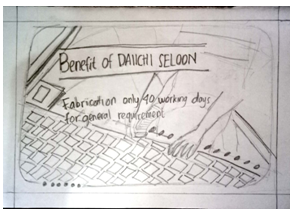 Benefit of DAIICHI SELOON
Fabrication only 40 working days
for general requirement